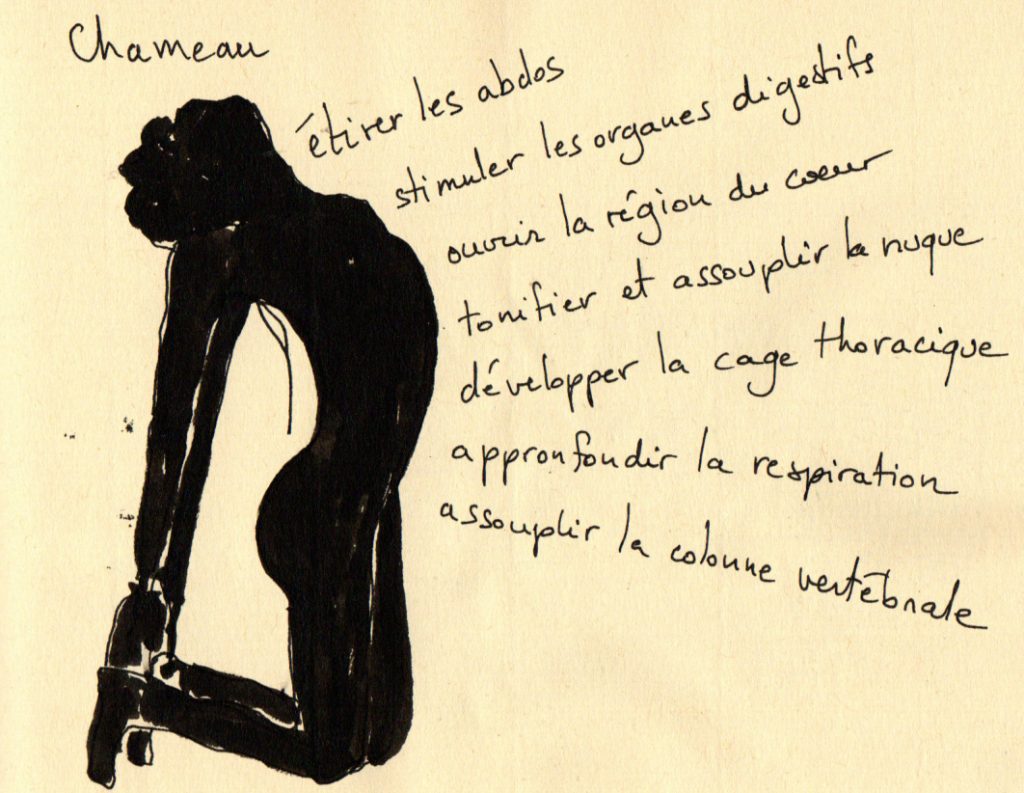 Chameau
étirer les abdos
stimuler les organes digestifs
ouvrir la région du coeur
tonifier et assouplir la nuque
développer la cage thoracique
appronfondir la respiration
assouplir la colonne vertébrale